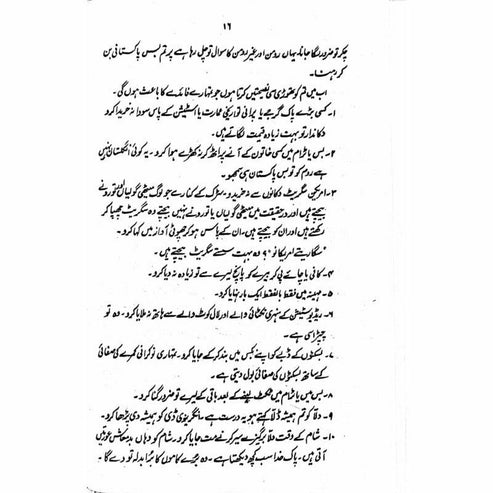 ۱۶
چکر تو ضرور لگا جانا۔ یہاں روسن اور غیر روسن کا سوال تو چل رہا ہے پر تم بس پاکستانی بن
کر رہنا۔
اب میں تم کو تھوڑی سی نصیحتیں کرتا ہوں جو تمہارے فائدے کا باعث ہوں گی۔
۱۔ کسی بڑے پاک گرجے یا پرانی تواریخی عمارت یا اسٹیشن کے پاس سودا نہ خریدا کرو
دکاندار تو بہت زیادہ قیمت لگاتے ہیں۔
۲۔ بس یا ٹرام میں کسی خاتون کے آنے پر اٹھ کر نہ کھڑے ہوا کرو۔ یہ کوئی انگلستان نہیں
ہے روم کو تو بس پاکستان ہی سمجھو۔
۳۔ امریکن سگریٹ دکانوں سے نہ خریدو۔ سڑک کے کنارے جو لوگ میٹھی گولیاں یا تورونے
بیچتے ہیں اور درحقیقت میں میٹھی گولیاں یا تورونے نہیں بیچتے وہ سگریٹ چھپا کر
رکھتے ہیں اور ان کو بیچتے ہیں۔ ان کے پاس ہو کر چھوٹی آواز میں کہا کرو۔
"سگاریتے امریکانو" وہ بہت سستے سگریٹ بیچتے ہیں۔
۴۔ کافی یا چائے پی کر بیرے کو پانچ لیرے سے تو زیادہ نہ دیا کرو۔
۵۔ مہینہ میں فقط بالفقط ایک بار نہایا کرو۔
۶۔ ریڈیو سٹیشن کے سنہری نکٹائی والے اور لال کوٹ والے سے ہاتھ نہ ملایا کرو۔ وہ تو
چپڑاسی ہے۔
۷۔ بسکٹوں کے ڈبے کو اپنے بکس میں بند کر کے جایا کرو۔ تمہاری نوکرانی کمرے کی صفائی
کے ساتھ بسکٹوں کی صفائی بول دیتی ہے۔
۸۔ بس میں یا ٹرام میں ٹکٹ لینے کے بعد باقی کے لیرے تو ضرور گنا کرو۔
۹۔ دلا کو تم ہمیشہ ڈلا کہتے ہو یہ درست ہے۔ انگریزی ڈی کو ہمیشہ دی پڑھا کرو۔
۱۰۔ شام کے وقت دلا برگیزے سیر کرنے مت جایا کرو۔ شام کو وہاں بدمعاش عورتیں
آتی ہیں۔ پاک خدا سب کچھ دیکھتا ہے۔ وہ برے کاموں کا برا بدلہ تو دے گا۔